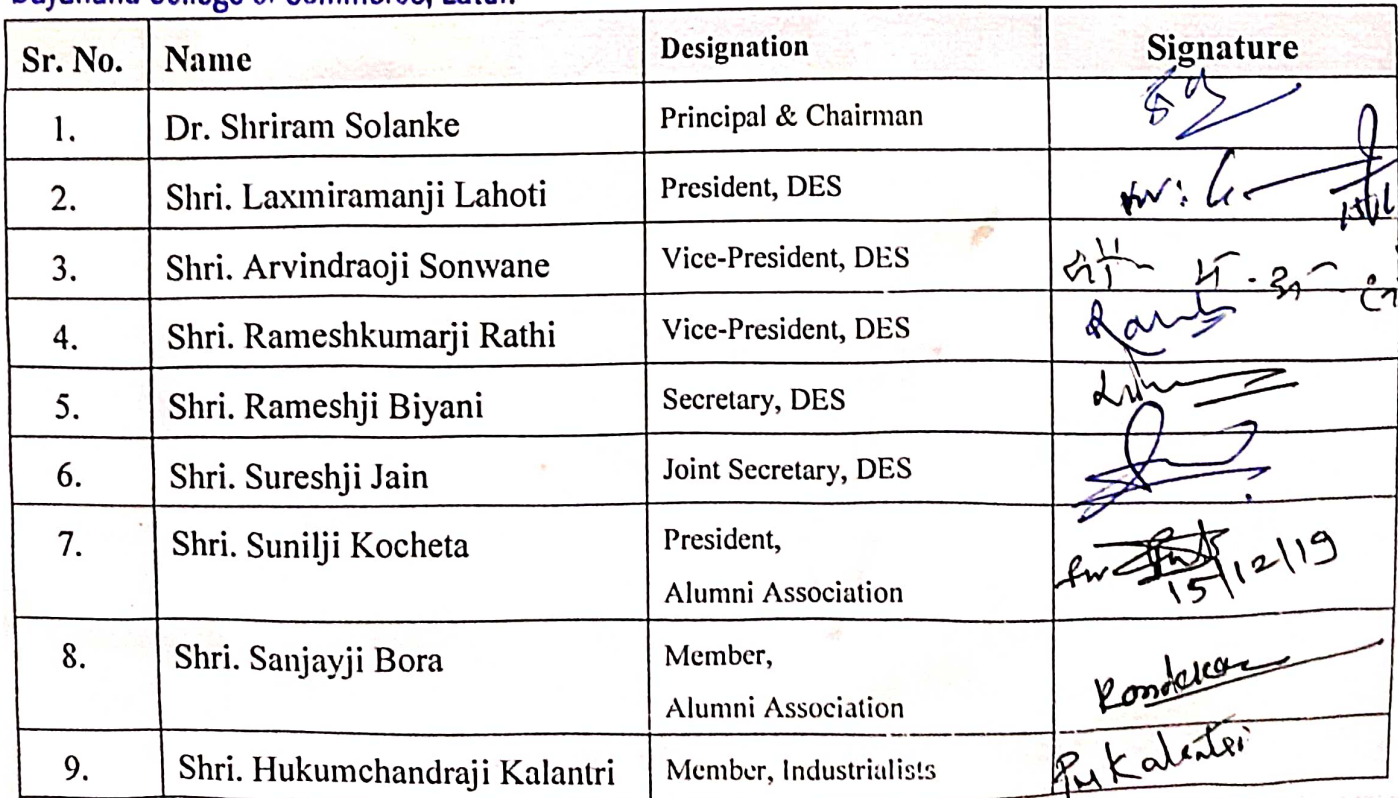 Dayanand College of Commerce, Latur.
Sr. No. Name Designation Signature
1. Dr. Shriram Solanke Principal & Chairman
2. Shri. Laxmiramanji Lahoti President, DES
3. Shri. Arvindraoji Sonwane Vice-President, DES
4. Shri. Rameshkumarji Rathi Vice-President, DES
5. Shri. Rameshji Biyani Secretary, DES
6. Shri. Sureshji Jain Joint Secretary, DES
7. Shri. Sunilji Kocheta President,
Alumni Association
15/12/19
8. Shri. Sanjayji Bora Member,
Alumni Association
9. Shri. Hukumchandraji Kalantri Member, Industrialists Kalantri